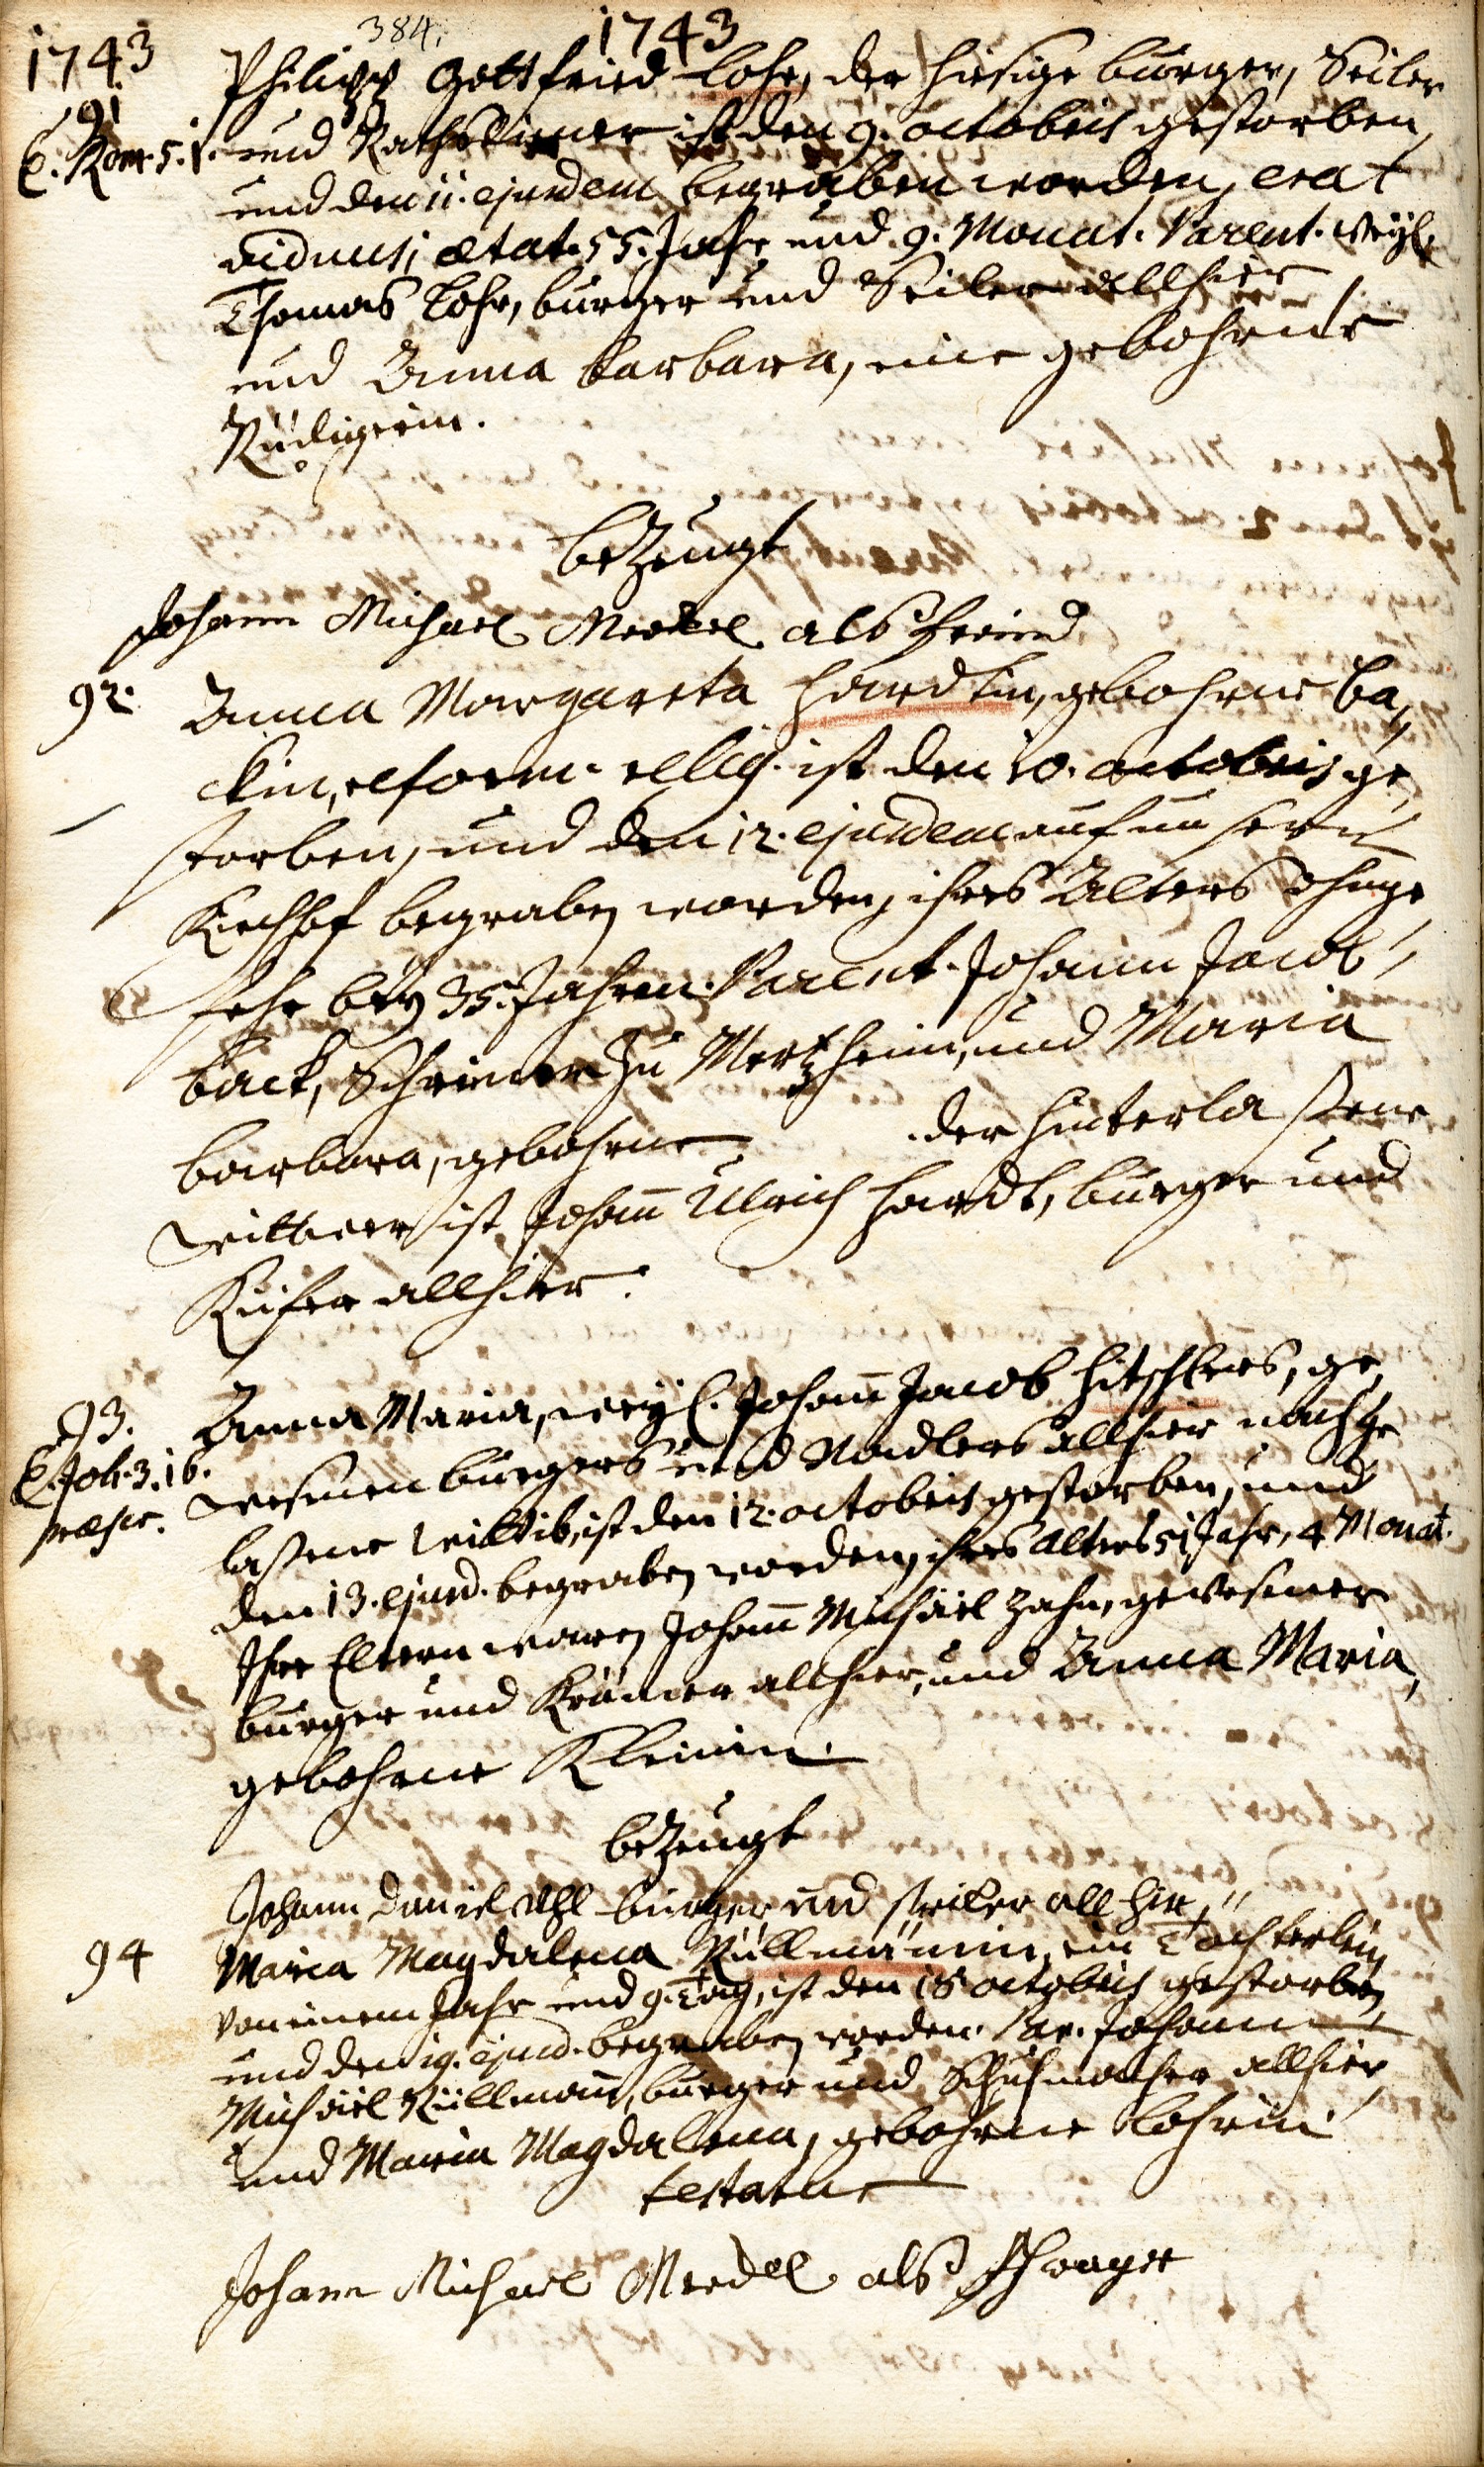 384.
1743 1743
91
C. Rom. 5. 1.
Philipp Gottfried Lohr, der hiesige burger, Seiler
und Rathsdiener ist den 9. octobris gestorben,
und den 11. ejusdem begraben worden, erat
viduus, ætat. 55. Jahr und 9. Monat. Parent. weyl.
Thomas Lohr, burger und Seiler allhier
und Anna barbara, eine gebohrne
Rüdigerin.
bezeugt
Johann Michael Merckel als freund
92. Anna Margareta Hardtin, gebohrne ba„
ckin, reform. relig. ist den 10. octobris ge„
storben, und den 12. ejusdem auf unsern
Kirchhof begraben worden, ihres Alters ohnge„
fehr bey 35. Jahren. Parent. Johann Jacob
back, Schreiner zu Mertzheim, und Maria
barbara, gebohrne der hinterlaßene
Wittwer ist Johann Ulrich Hardt, burger und
Küfer allhier.
93.
C. Joh. 3. 16.
Anna Maria, weyl. Johann Jacob Hitschlers, ge„
wesenen burgers und Nadlers allhier nachge
laßene Wittib, ist den 12. octobris gestorben, und
den 13. ejusd. begraben worden, ihres Alters 51 Jahr, 4 Monat.
Ihre Eltern waren Johann Michäel Zahn, gewesener
burger und Krämer allhier, und Anna Maria,
gebohrne Kleinin.
bezeugt
Johann Daniel Uhl burger und seiler all hir
94 Maria Magdalena Rüllmännin, ein Töchterlein
von einem Jahr und 9. Tag, ist den 18 octobris gestorben,
und den 19. ejusd. begraben worden. Par. Johann
Michäel Rüllmann, burger und Schuhmacher allhier,
und Maria Magdalena, gebohrne Lohrin.
testatur
Johann Michael Merckel als Schwager